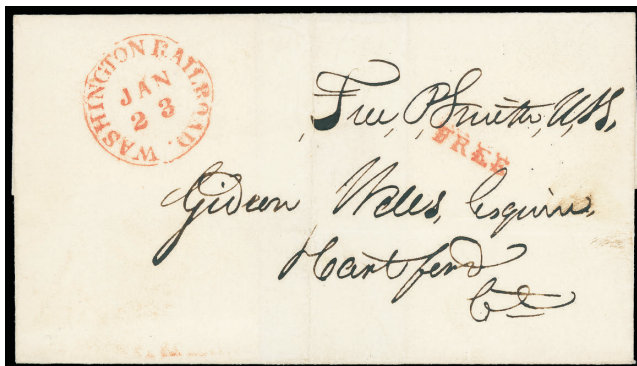 WASHINGTON RAILROAD.
JAN
23
Free, P. Smith, U.S.S.
FREE
Gideon Welles, Esquire,
Hartford
Ct